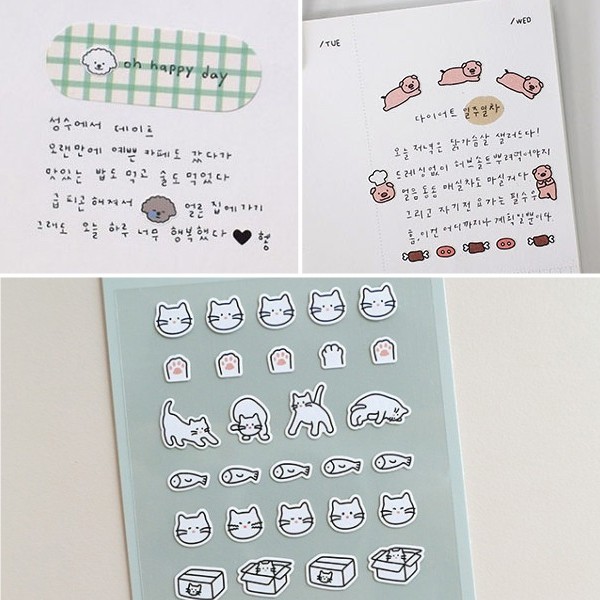 oh happy day
성수에서 데이트
오랜만에 예쁜 카페도 갔다가
맛있는 밥도 먹고 술도 먹었다
급 피곤해져서 얼른 집에가기
그래도 오늘 하루 너무 행복했다 ♥ 헿
/TUE
/WED
다이어트 일주일차
오늘 저녁은 닭가슴살 샐러드다!
드레싱없이 허브솔트뿌려먹어야지
얼음동동 매실차도 마실거다
그리고 자기전 요가는 필수
흠, 이건 어디까지나 계획일뿐이